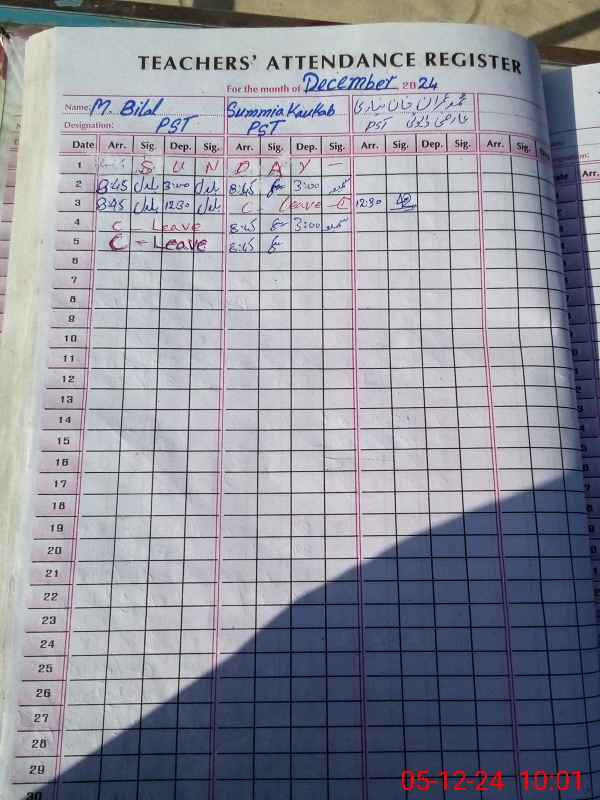 TEACHERS' ATTENDANCE REGISTER
For the month of December 2024
Name: M. Bilal Summia Kaukab محمد عمران خان نیازی
Designation: PST PST PST عارضی ڈیوٹی
Date Arr. Sig. Dep. Sig. Arr. Sig. Dep. Sig. Arr. Sig. Dep. Sig. Arr. Sig. Dep.
1 S U N D A Y —
2 8:45 بلال 3:00 بلال 8:45 3:00
3 8:45 بلال 12:30 بلال C - Leave 12:30
4 C - Leave 8:45 3:00
5 C - Leave 8:45
6
7
8
9
10
11
12
13
14
15
16
17
18
19
20
21
22
23
24
25
26
27
28
29
30
05-12-24 10:01